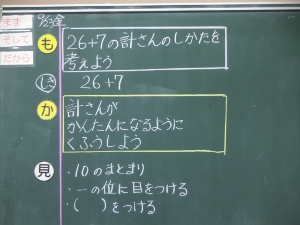 まず
そして
だから
9/23金
も
26+7の計さんのしかたを
考えよう
しき
26+7
か
計さんが
かんたんになるように
くふうしよう
見
・10のまとまり
・一の位に目をつける
・(　)をつける